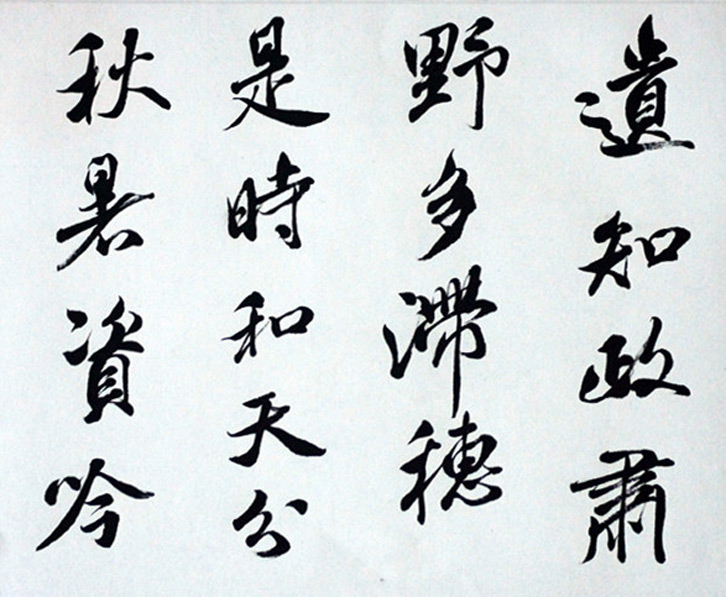 遺知政肅
野多滯穗
是時和天分
秋暑資吟